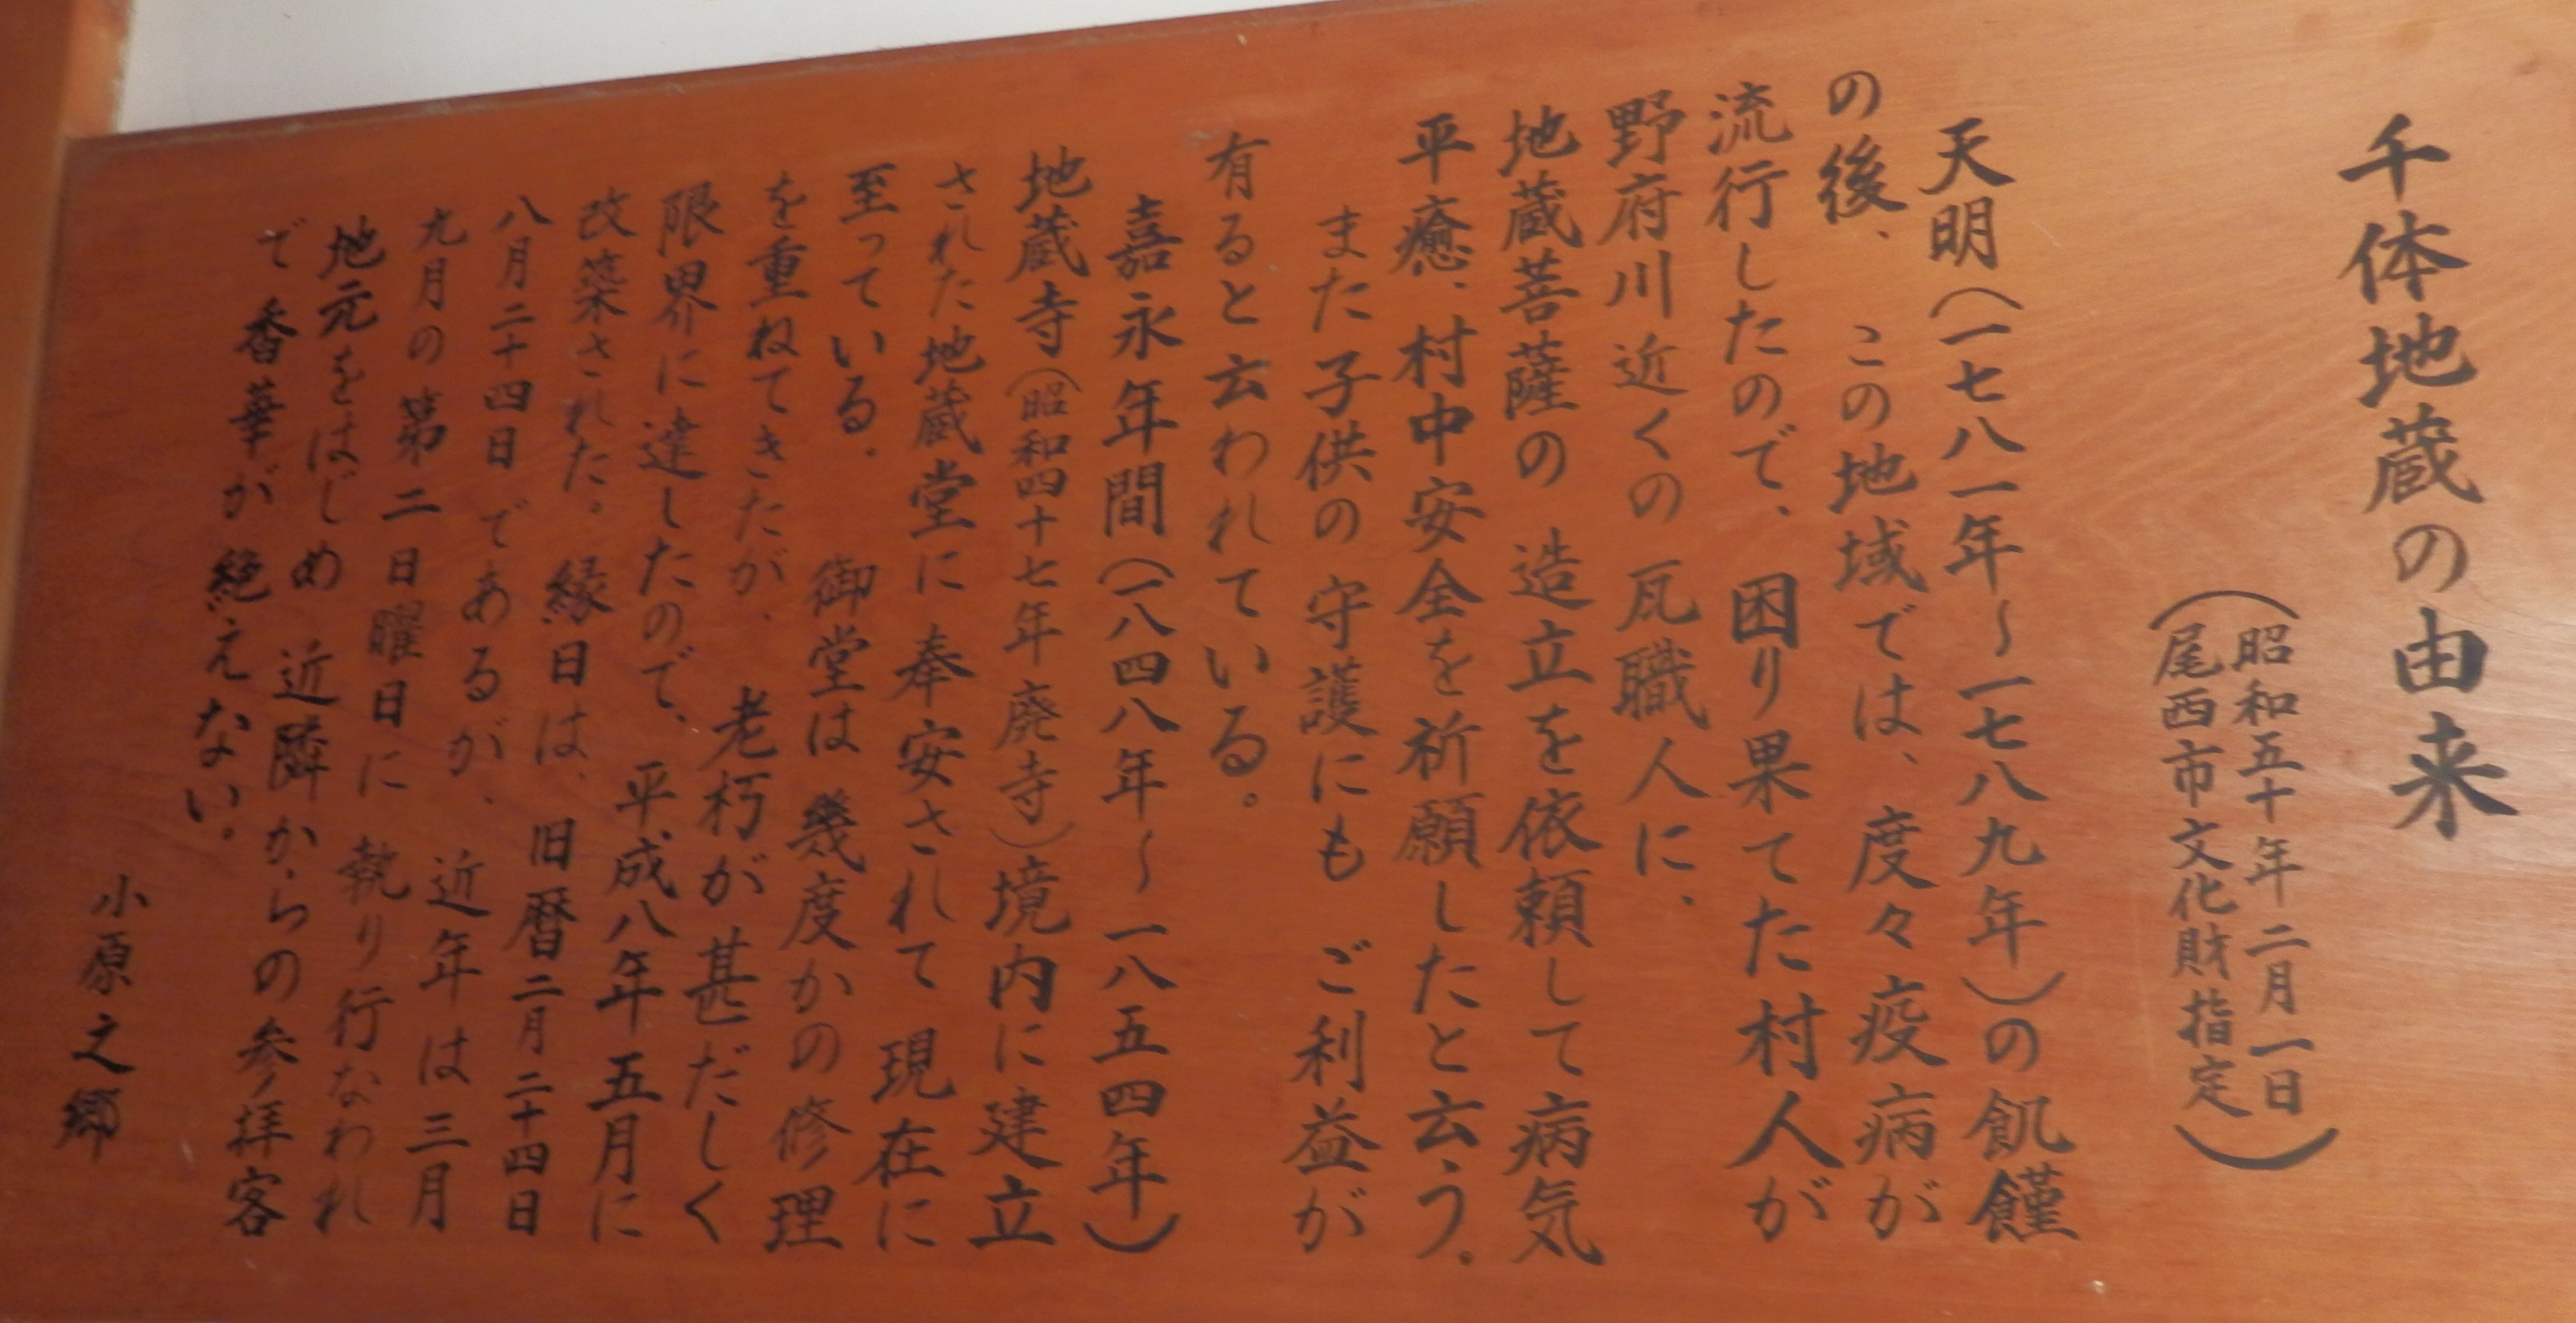 千体地蔵の由来
（昭和五十年二月一日
尾西市文化財指定）
天明（一七八一年～一七八九年）の飢饉
の後、この地域では、度々疫病が
流行したので、困り果てた村人が
野府川近くの瓦職人に、
地蔵菩薩の造立を依頼して病気
平癒、村中安全を祈願したと云う。
また子供の守護にもご利益が
有ると云われている。
嘉永年間（一八四八年～一八五四年）
地蔵寺（昭和四十七年廃寺）境内に建立
された地蔵堂に奉安されて現在に
至っている。御堂は幾度かの修理
を重ねてきたが、老朽が甚だしく
限界に達したので、平成八年五月に
改築された。縁日は、旧暦二月二十四日
八月二十四日であるが、近年は三月
九月の第二日曜日に執り行なわれ
地元をはじめ近隣からの参拝客
で香華が絶えない。
小原之郷